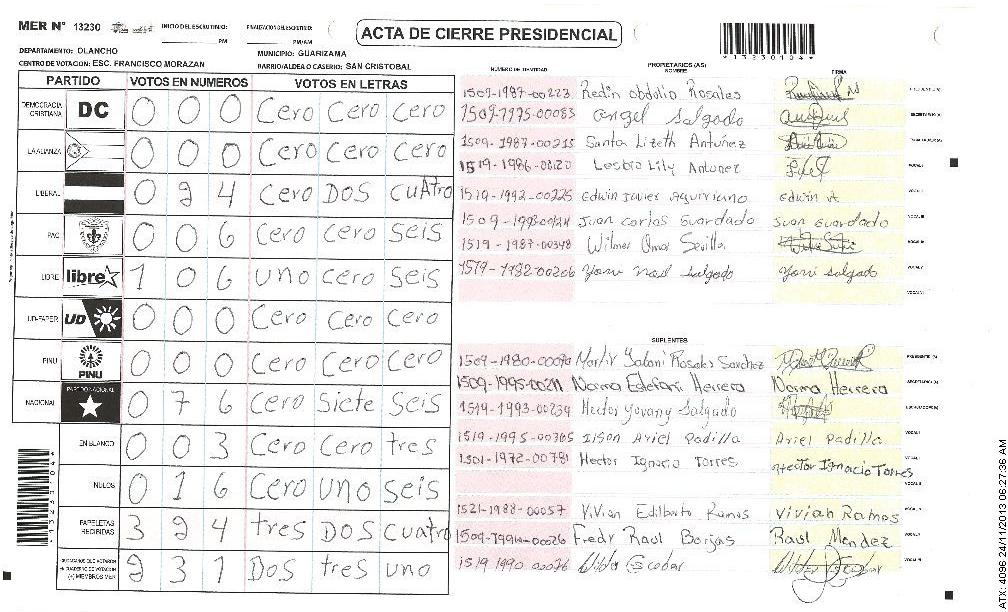 MER N° 13230 INICIO DEL ESCRUTINIO: FINALIZACION DEL ESCRUTINIO:
PM PM/AM
ACTA DE CIERRE PRESIDENCIAL
*13230104*
DEPARTAMENTO: OLANCHO MUNICIPIO: GUARIZAMA
CENTRO DE VOTACION: ESC. FRANCISCO MORAZAN BARRIO/ALDEA O CASERIO: SAN CRISTOBAL
PARTIDO VOTOS EN NUMEROS VOTOS EN LETRAS
DEMOCRACIA CRISTIANA DC 0 0 0 Cero Cero Cero
LA ALIANZA 0 0 0 Cero Cero Cero
LIBERAL 0 2 4 Cero DOS CUATRO
PAC 0 0 6 Cero Cero Seis
LIBRE libre 1 0 6 uno Cero Seis
UD-FAPER UD 0 0 0 Cero Cero Cero
PINU PINU 0 0 0 Cero Cero Cero
NACIONAL PARTIDO NACIONAL 0 7 6 Cero Siete Seis
EN BLANCO 0 0 3 Cero Cero tres
NULOS 0 1 6 Cero uno Seis
PAPELETAS RECIBIDAS 3 2 4 tres DOS Cuatro
CIUDADANOS QUE VOTARON S/ CUADERNO DE VOTACION (+) MIEMBROS MER 2 3 1 DOS tres uno
*13230104*
NUMERO DE IDENTIDAD PROPIETARIOS (AS) NOMBRE FIRMA
1509-1987-00223 Redin Obdulio Rosales PRESIDENTE (A)
angel Salgado SECRETARIO (A)
1509-1987-00215 Santa Lizeth Antúnez
1519-1986-00120 Lesbia Lily Antunez VOCAL I
1519-1992-00225 Edwin Javier Edwin A VOCAL II
Juan Carlos Guardado Juan Guardado VOCAL III
1519-1987-00348 Wilmer Omar Sevilla VOCAL IV
Salgado Yoni Salgado VOCAL V
VOCAL VI
SUPLENTES
Rosales Sanchez PRESIDENTE (A)
Norma Estefani Herrera Norma Herrera SECRETARIO (A)
1519-1993-00234 Hector Yovany Salgado
1519-1995-00365 Ilson Ariel Padilla Ariel Padilla VOCAL I
1501-1972-00781 Hector Ignacio Torres Hector Ignacio Torres VOCAL II
VOCAL III
1521-1988-00057 Vivian Edilberto Ramos Vivian Ramos VOCAL IV
Fredy Raul Borjas Raul Mendez VOCAL V
1519 1990 00076 Wilder Escobar VOCAL VI
ATX: 4096 24/11/2013 06:27:36 AM